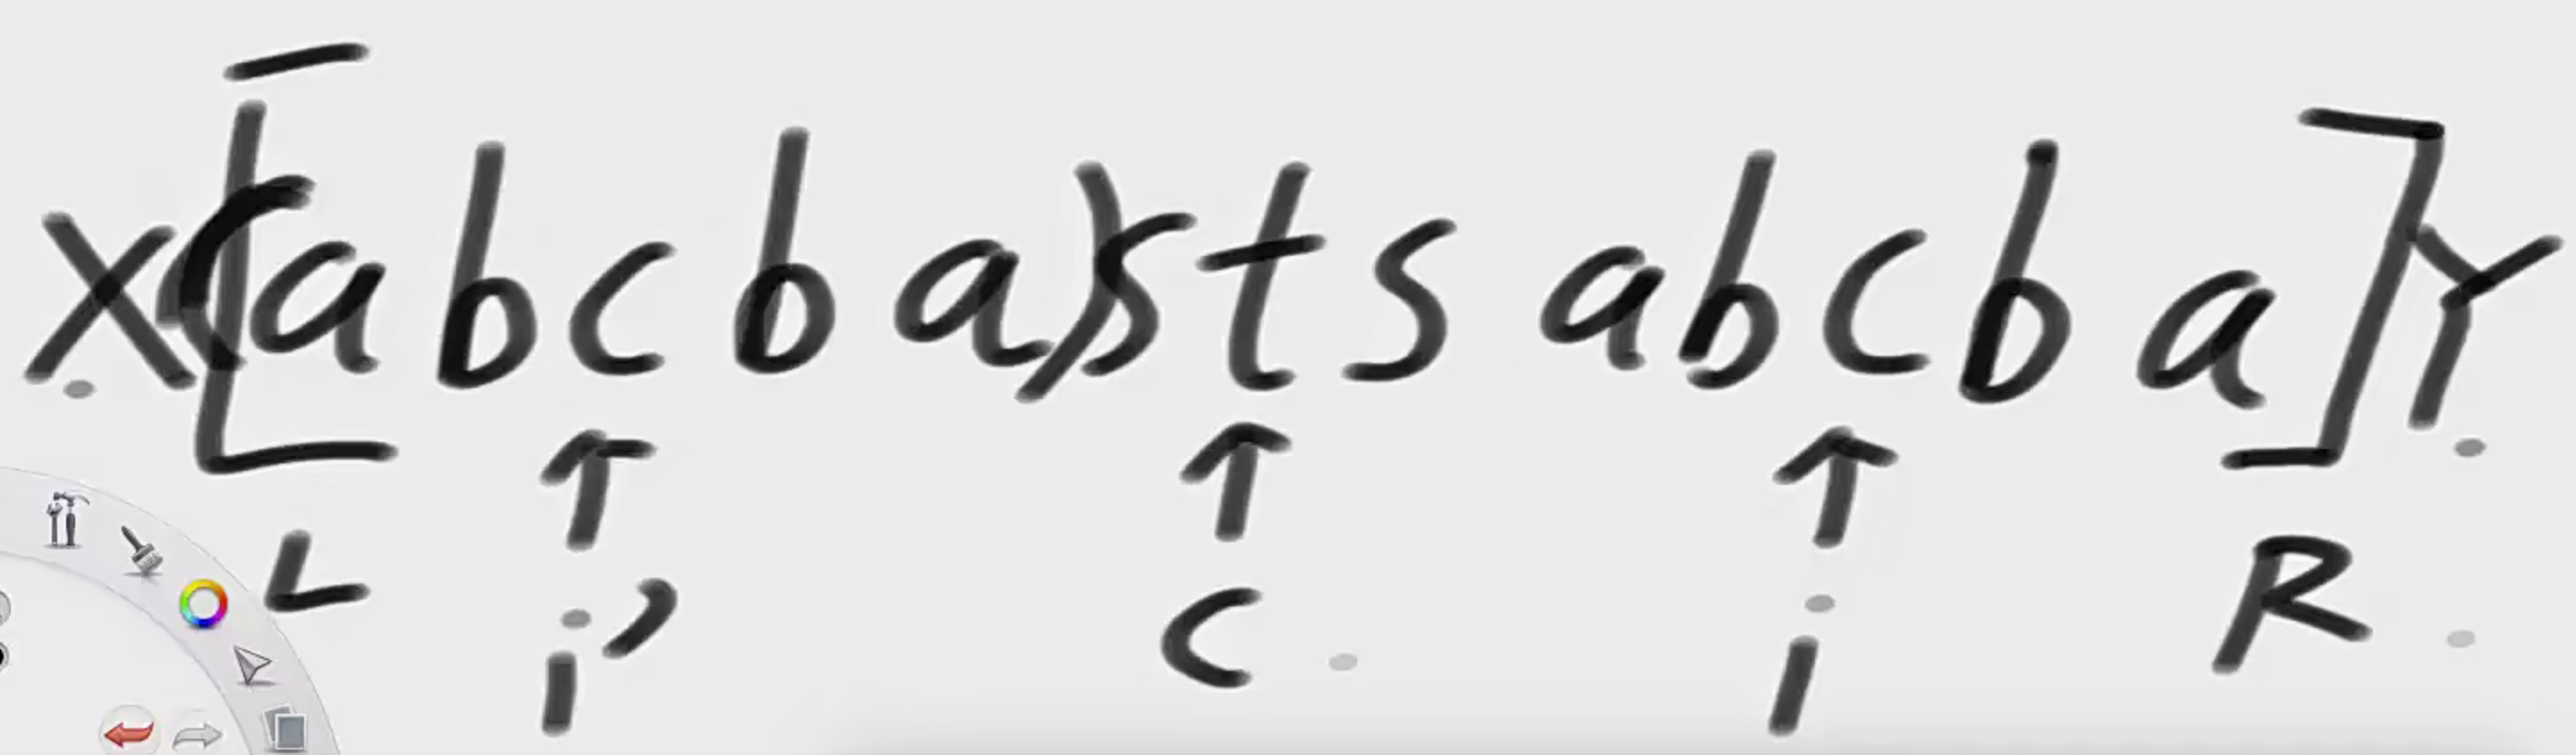 X([abcba)stsabcba]Y
L i' C i R